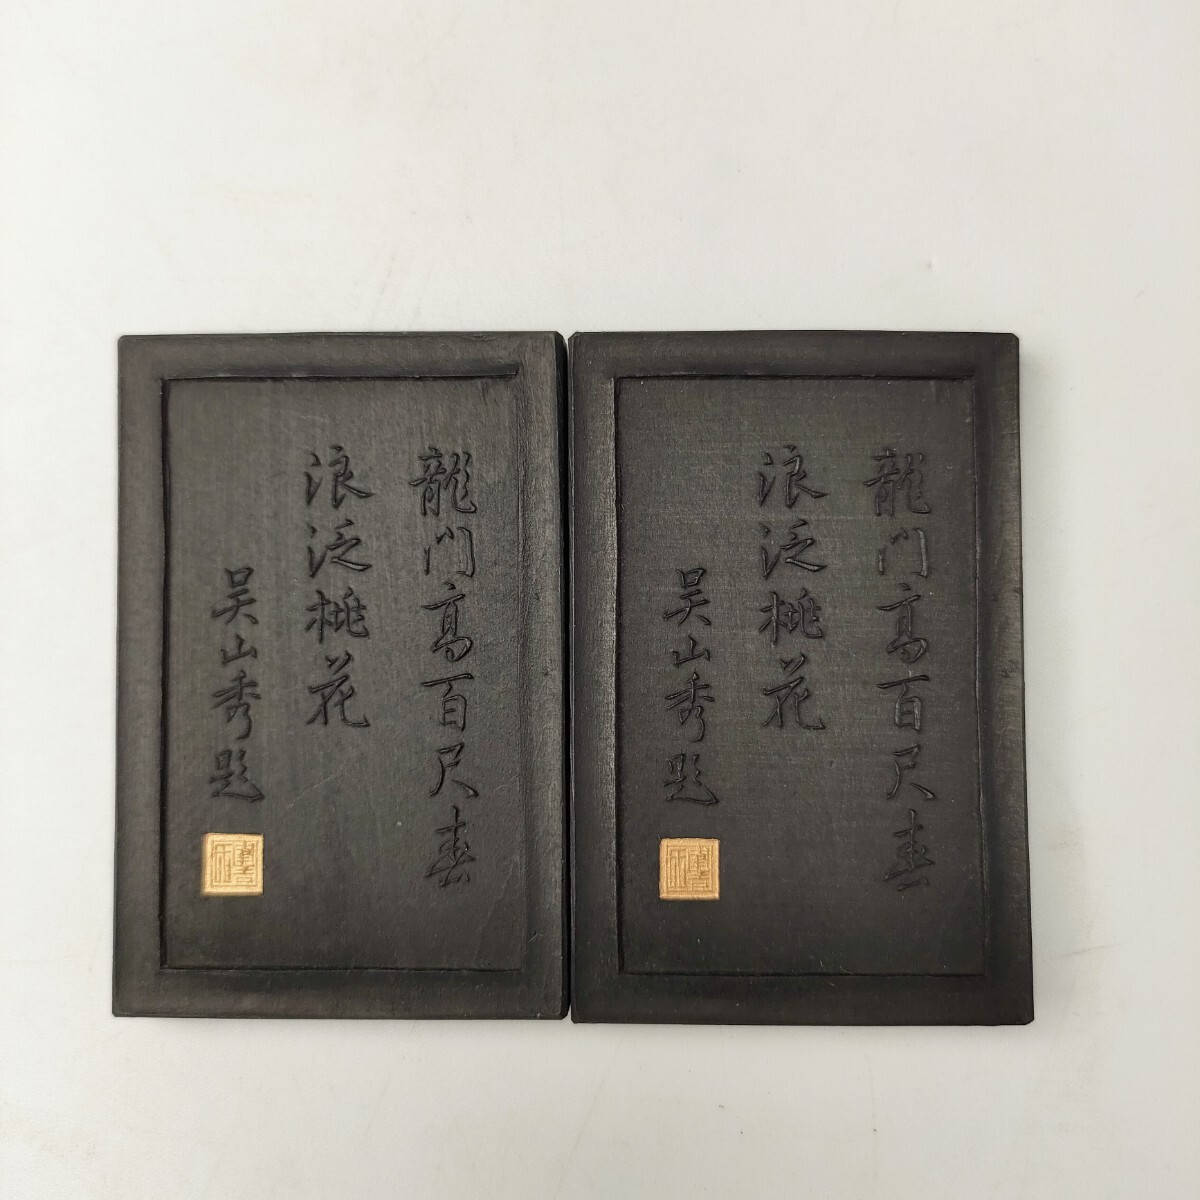 龍門高百尺春
浪泛桃花
吴山秀題
龍門高百尺春
浪泛桃花
吴山秀題